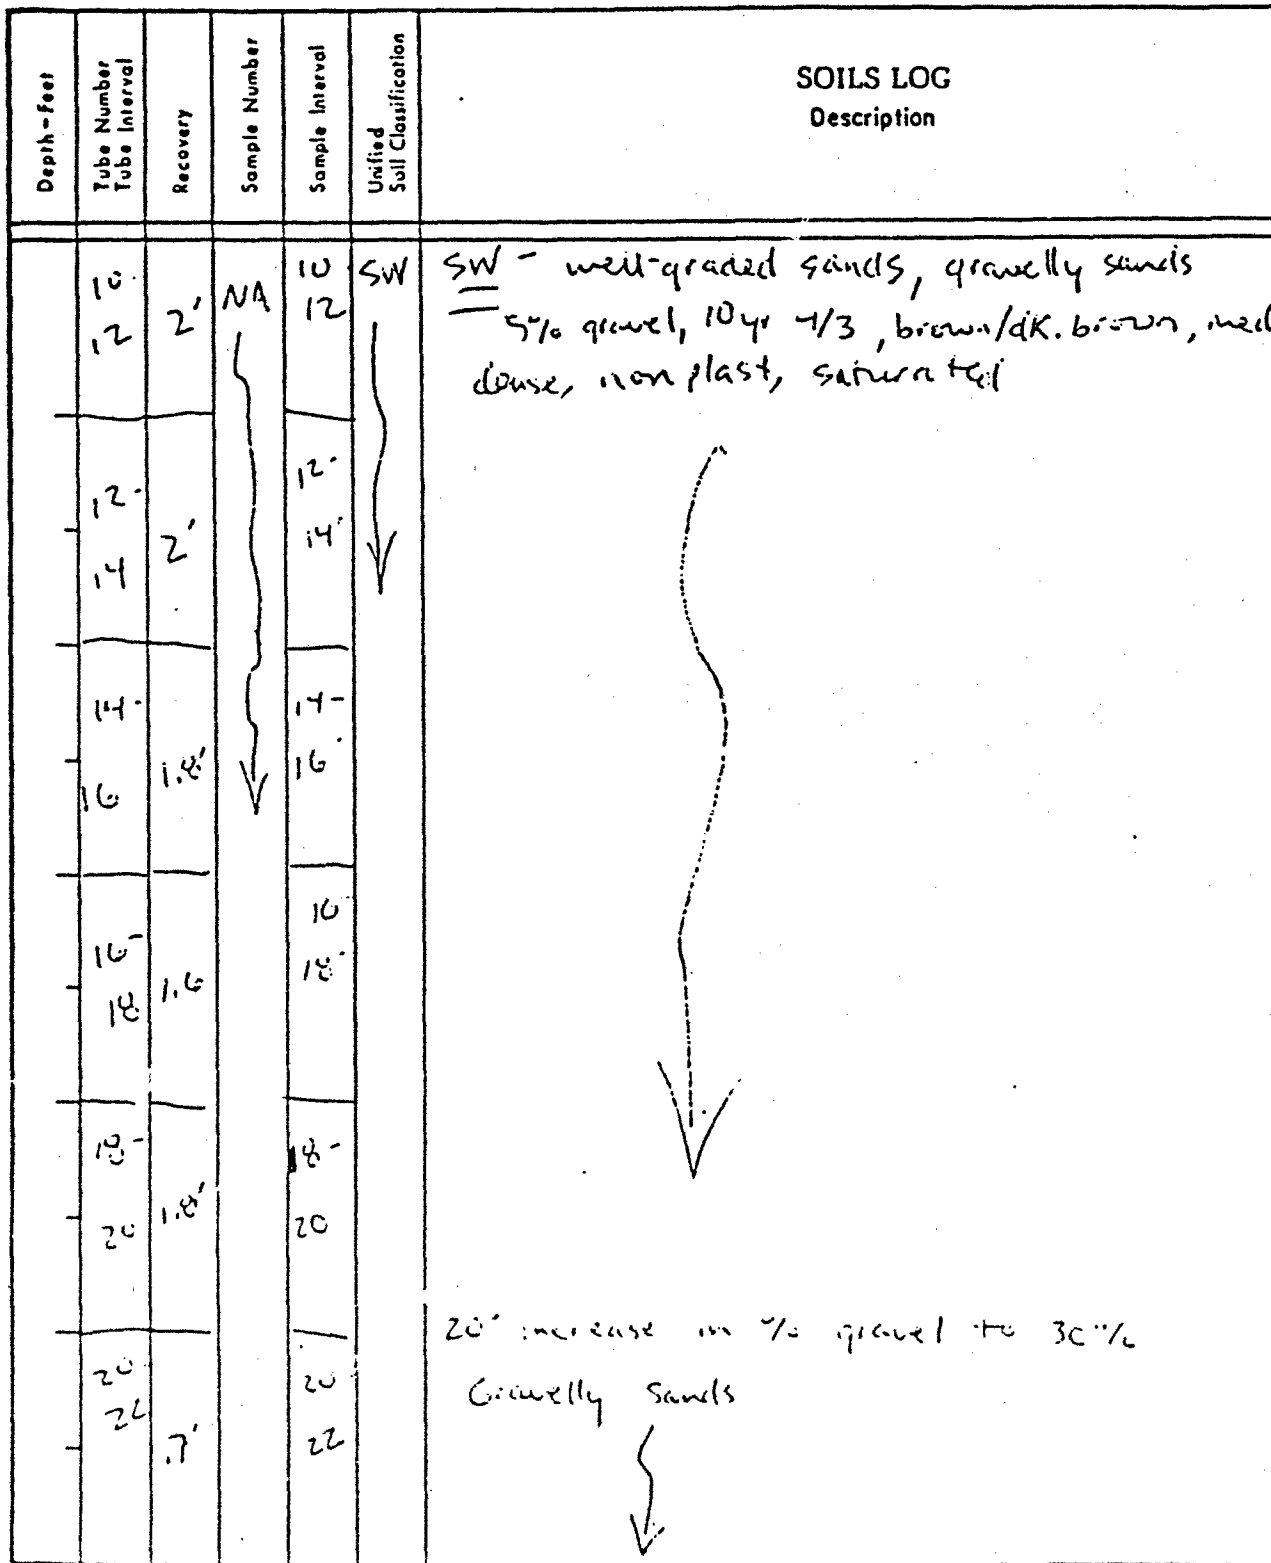 Depth-Feet
Tube Number
Tube Interval
Recovery
Sample Number
Sample Interval
Unified
Soil Classification
SOILS LOG
Description
10-
12
2'
NA
10
12
SW
SW - well-graded sands, gravelly sands
5% gravel, 10yr 4/3, brown/dk. brown, med
dense, non plast, saturated
12-
14
2'
12-
14'
14-
16
1.8'
14-
16'
16-
18
1.6
16-
18'
18-
20
1.8'
18-
20
20' increase in % gravel to 30%
Gravelly Sands
20
22
.7'
20
22